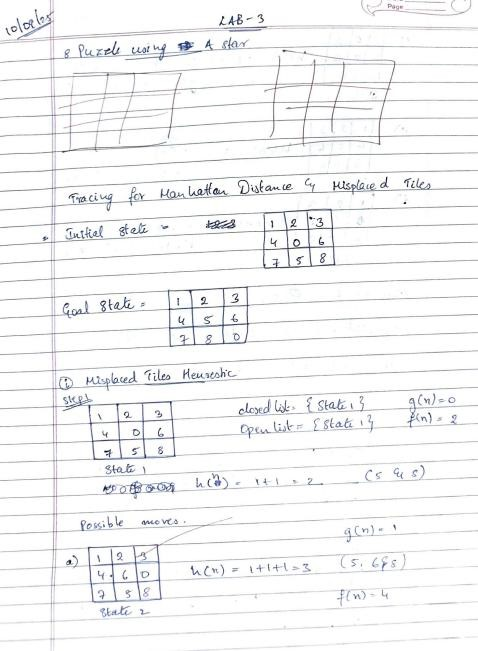 Page
10/09/05
LAB-3
8 Puzzle using A star
Tracing for Manhattan Distance & Misplaced Tiles
Initial State =
1 2 3
4 0 6
7 5 8
Goal State =
1 2 3
4 5 6
7 8 0
① Misplaced Tiles Heurestic
Step 1
1 2 3
4 0 6
7 5 8
State 1
closed list = { State 1 }
Open list = { State 1 }
g(n) = 0
f(n) = 2
h(n) = 1+1 = 2
Possible moves.
a)
1 2 3
4 6 0
7 5 8
State 2
h(n) = 1+1+1 = 3
g(n) = 1
f(n) = 4